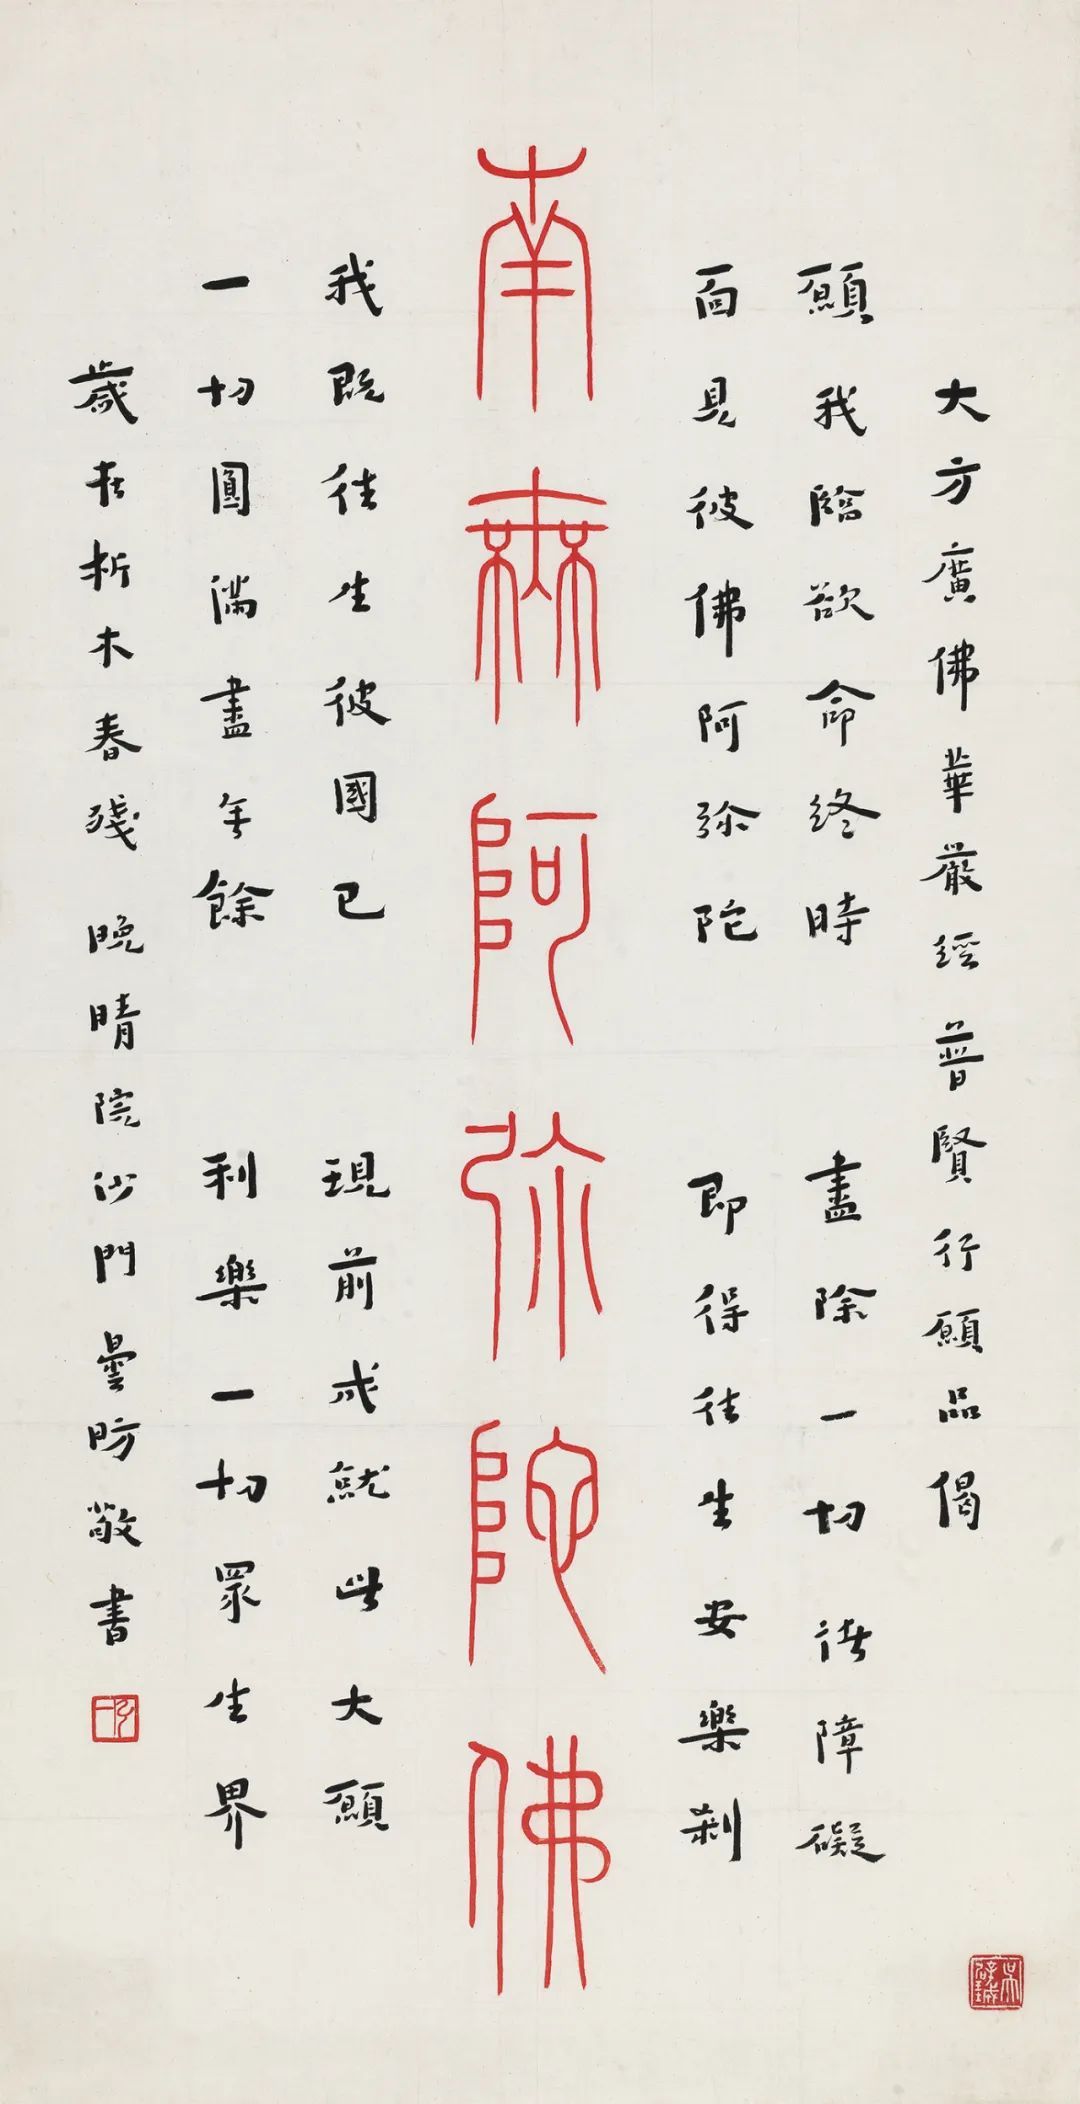 大方廣佛華嚴經普賢行願品偈
願我臨欲命終時 盡除一切諸障礙
面見彼佛阿弥陀 即得往生安樂剎
南無阿弥陀佛
我既往生彼國已 現前成就此大願
一切圓滿盡无餘 利樂一切眾生界
歲在析木春殘 晚晴院沙門曇昉敬書